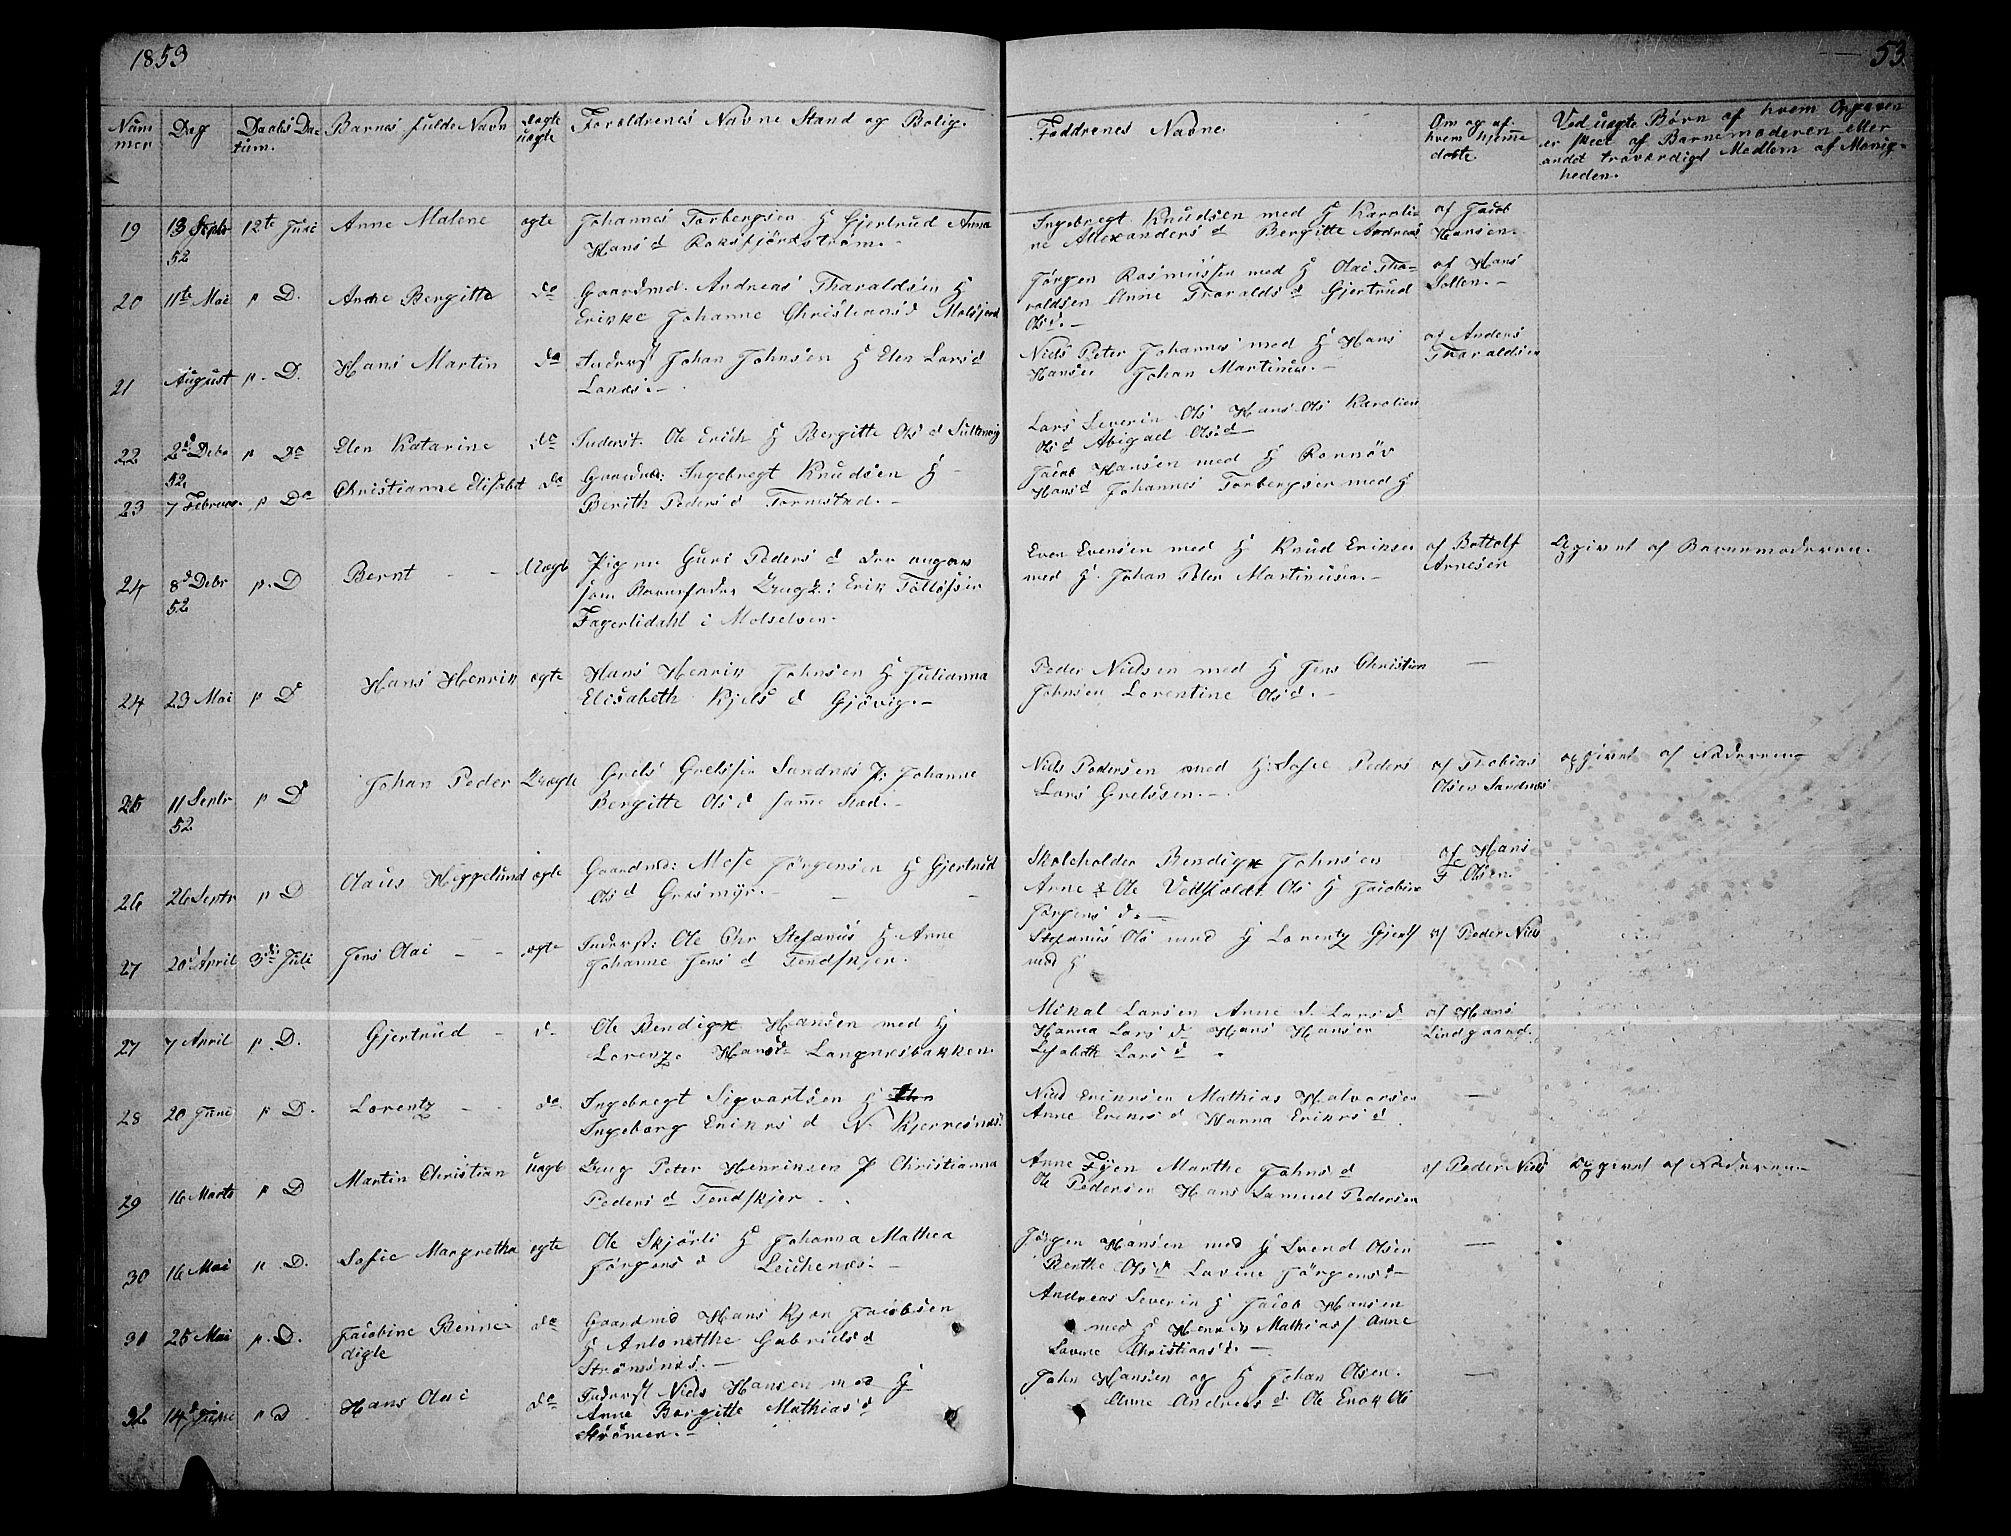 1853
53.
Num
mer
Dag
Daabs Da
tum.
Barnes fulde Navn
ægte
uægte
Forældrenes Navne Stand og Bolig.
Faddrenes Navne
Om og af
hvem hjemme
døbte
Ved uægte Børn af hvem Opgaven
er skeet af Barnemoderen eller
andet troværdigt Medlem af Menig-
heden.
19 13 Septr 52 12te Juni Anne Malene ægte Johannes Torbergsen H Gjertrud Anna
Hans d Roksfjordstrøm.-
Ingebregt Knudsen med H Karoli-
ne Allexanders d Bergitte Andreas
af Jacob
Hansen.
20 11te Mai p D. Anne Bergitte do Gaardmd. Andreas Tharaldsen H
Erikke Johanne Christians d
Jørgen Rasmussen med H Olai Tha-
raldsen Anne Tharalds d Gjertrud
Ols d.-
af Hans
21 August p. D. Hans Martin do Inderst Johan Johnsen H Elen Lars d
Niels Peter Johannes med H Hans
Hansen Johan Martinus.-
af Anders
Tharaldsen
22 2d Debr 52 p Do Elen Katarine do Inderst. Ole Erich H Bergitte Ols d
Lars Severin Ols Hans Ols Karoline
Ols d Abigael Ols d
23 7 Februar. p Do Christianne Elisabet do Gaardmd: Ingebregt Knudsen H
Berith Peders d Tormstad.-
Jacob Hansen med H Rannøv
Hans d Johannes Torbergsen med H
24 8d Debr 52 p. D Bernt - - Uægte Pigen Guri Peders d der angav
som Barnefader Ungk: Erik Tollefsen
Fagerlidahl i Molselven.
Even Evensen med H Knud Eriksen
med H. Johan Peter Martinusen.-
af Bottolf
Arnesen
Opgivet af Barnemoderen.
24 23 Mai p D Hans Henrik ægte Hans Henrik Johnsen H Julianna
Elisabeth Kjels d Gjøvig.-
Peder Nielsen med H Jens Christian
Johnsen Lorentine Ols d.-
25 11 Septr 52 p D Johan Peder Uægte Grels Grelssen Sandnes P: Johanne
Bergitte Ols d samme Sted.-
Niels Pedersen med H: Sofie Peders
Lars Grelssen.-
af Thobias
Olsen Sandnes
opgivet af Faderen-
26 26 Septr p D Olaus Heggelund ægte Gaardmd: Mose Jørgensen H Gjertrud
Ols d Græsmyr.-
Skoleholder Bendigx Johnsen
Arne & Ole Veilholdt Ols H Jacobine
Jørgens d.-
af Hans
F Olsen.
27 20d April 3di Juli Jens Olai - - ægte Inderst: Ole Chr Stefanus H Anne
Johanne Jens d Tendskjer.
Stefanus Ols med H Lorentz Gjert
med H
af Peder Niels
27 7 April p. D. Gjertrud - d. Ole Bendigx Hansen med H
Lorenze Hans d Langnesbakken.
Mikal Larsen Anne S. Lars d
Hanna Lars d Hans Hansen
Lisabeth Lars d
af Hans
Lindgaard.
28 20 June p D. Lorentz - - do Ingebregt Sigvartsen H
Ingeborg Eriks d N. Kjerresnes.
Niels Eriksen Mathias Halvorsen
Anne Eriks d Hanna Eriks d.
29 16 Marts p D Martin Christian uægt Ung Peter Henriksen P Christianna
Peders d Tendskjer.
Anne Fijen Marthe Johns d
Ole Pedersen Hans Samuel Pedersen
af Peder Niels
opgivet af Faderen-
30 16 Mai p D. Sofie Margretha ægte Ole Skjørli H Johanna Mathea
Jørgens d Leikenes.-
Jørgen Hansen med H Svend Olsen
Berthe Ols d Lovine Jørgens d-
31 25 Mai p. D. Jacobine Benne-
digte do Gaardmd Hans Kjøn Jacobsen
H Antonetthe Gabriels d
Strømsnes.-
Andreas Severin H Jacob Hansen
med H Henrik Mathias Anne
Lovine Christians d.-
32 14d June p D Hans Olai do Inderst Niels Hansen med H
Anne Bergitte Mathias d
Strømen.-
John Hansen og H Johan Olsen.
Anne Andreas d Ole Enok Ols